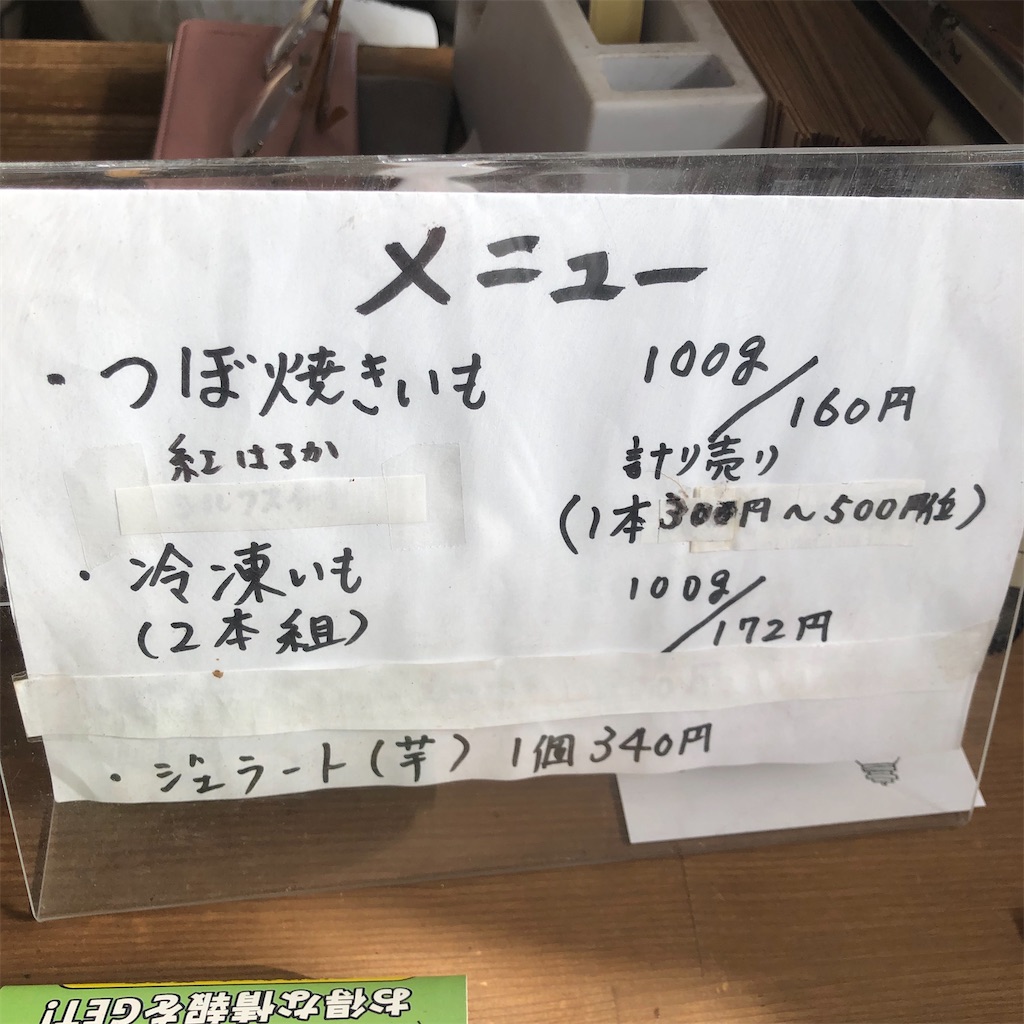 メニュー
・つぼ焼きいも 100g/160円
紅はるか 計り売り
(1本300円~500円位)
・冷凍いも 100g/172円
(2本組)
・ジェラート(芋) 1個340円
お得な情報をGET!